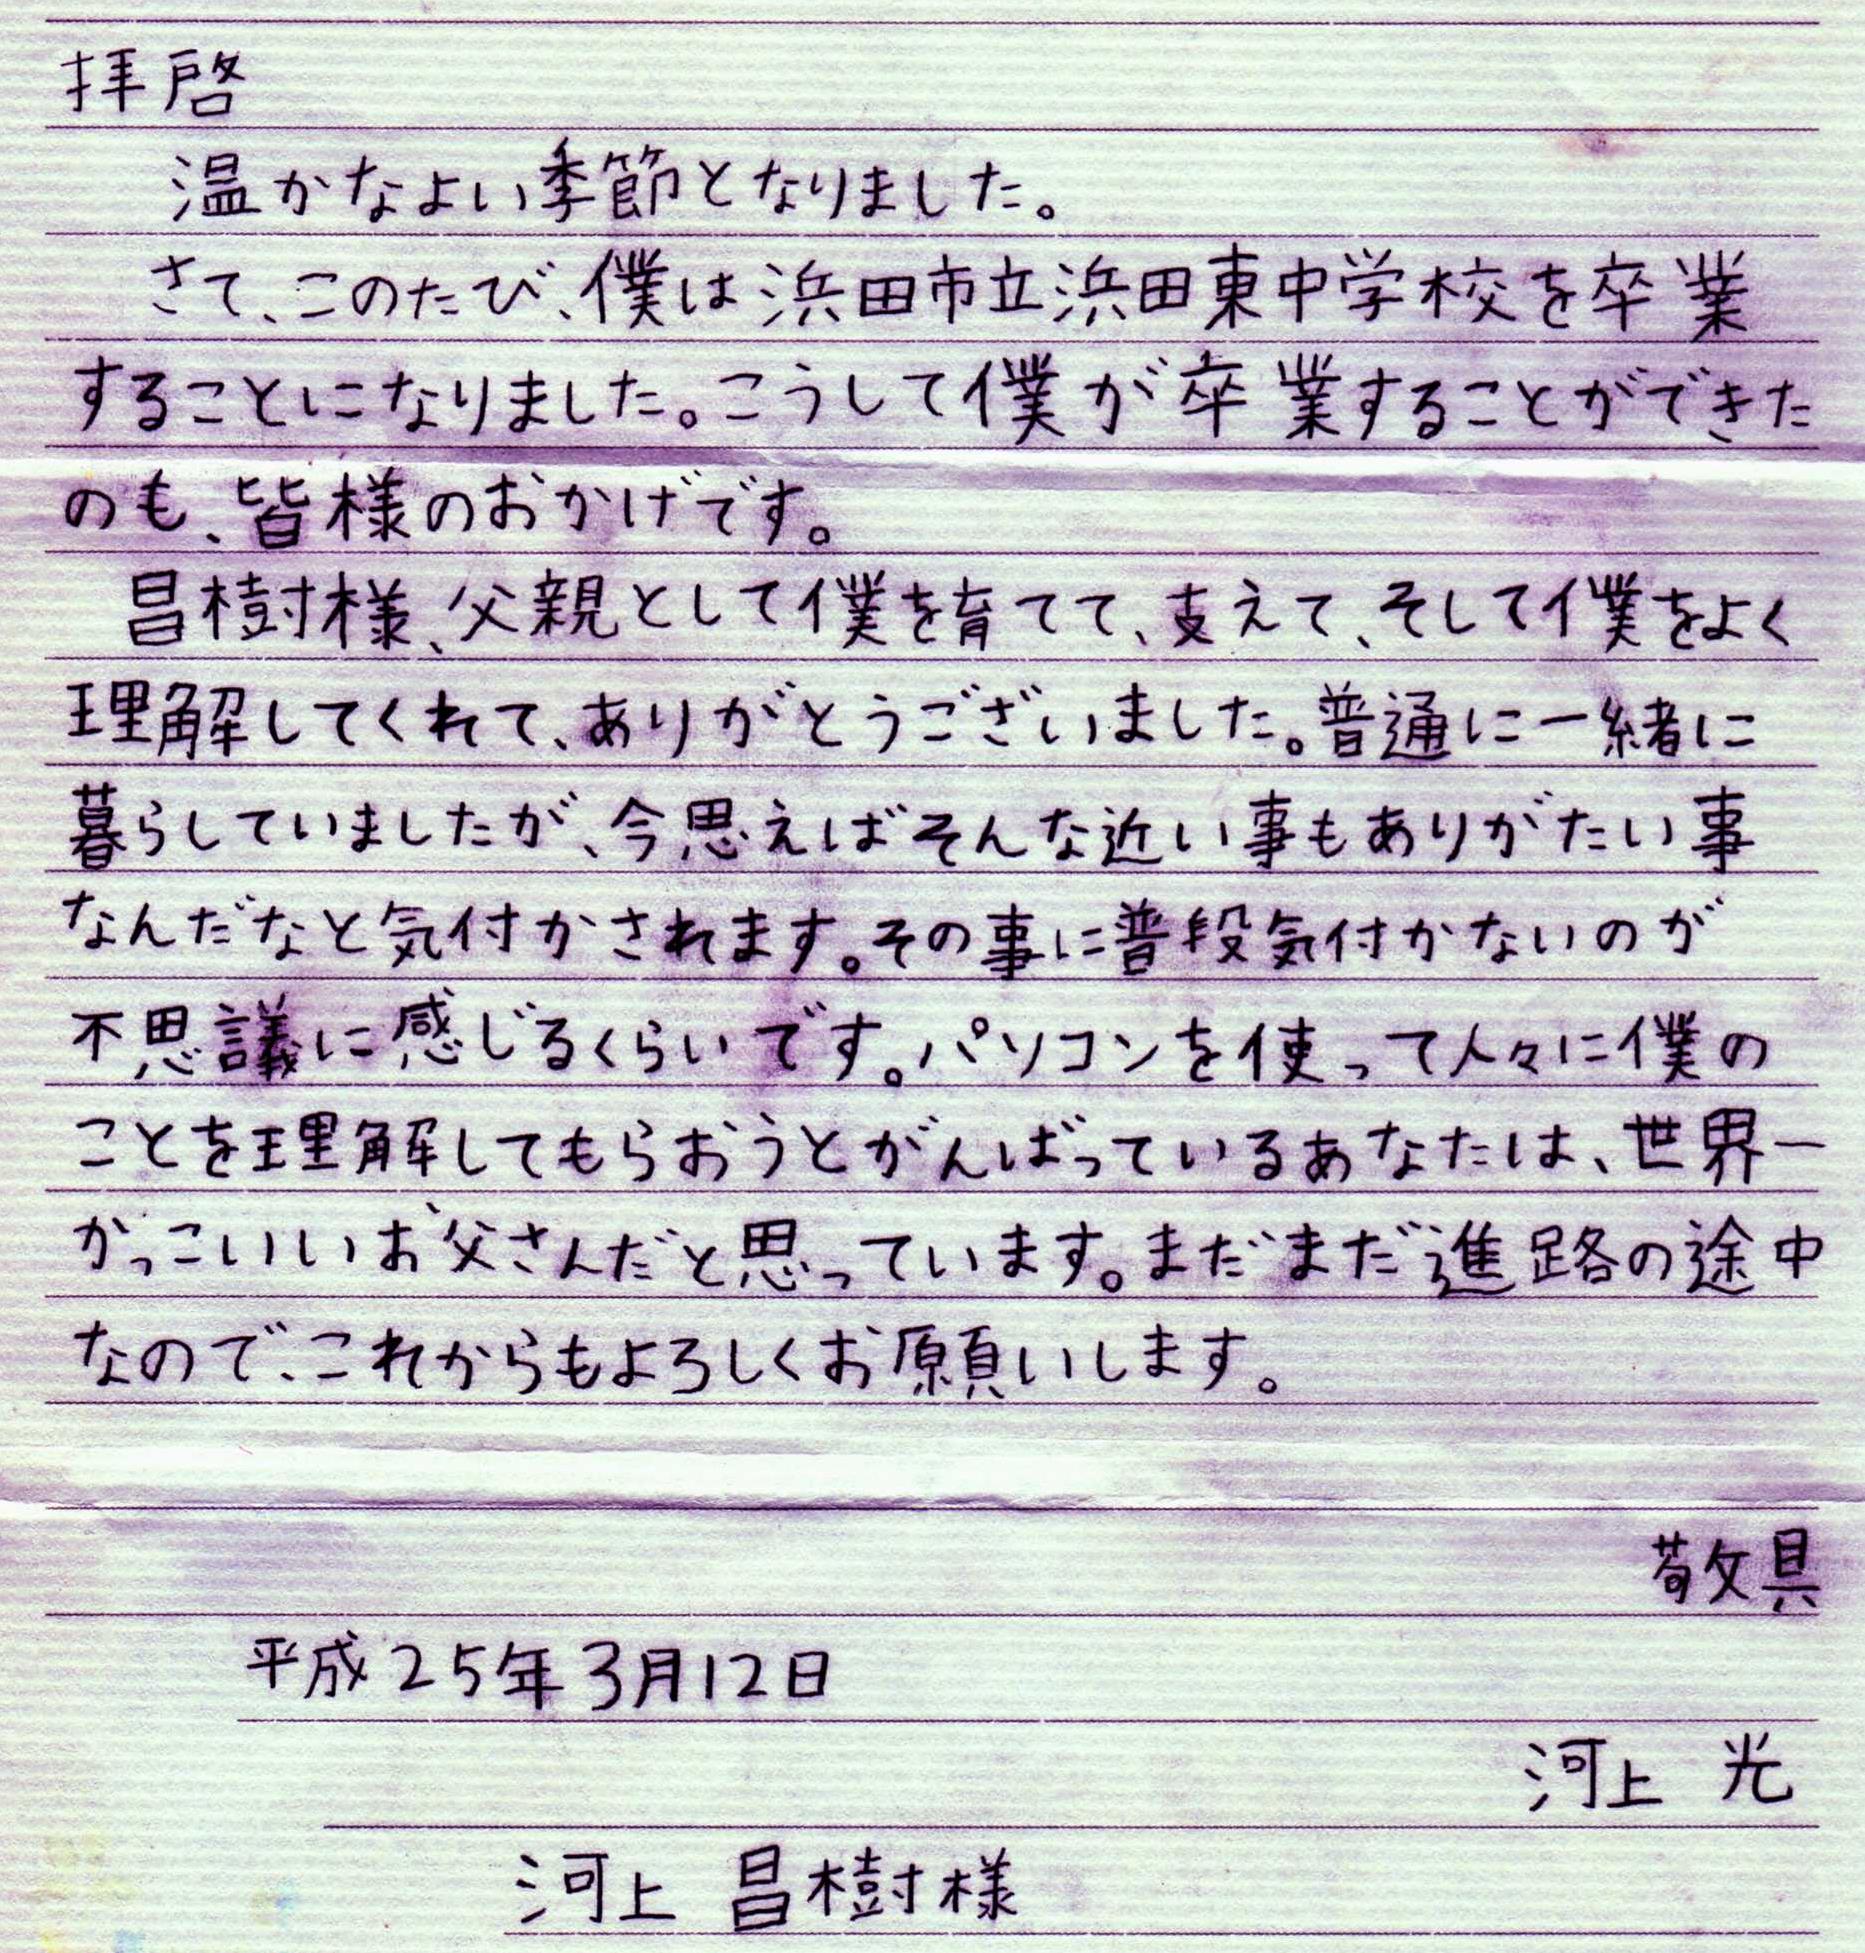 拝啓
温かなよい季節となりました。
さて、このたび、僕は浜田市立浜田東中学校を卒業
することになりました。こうして僕が卒業することができた
のも、皆様のおかげです。
昌樹様、父親として僕を育てて、支えて、そして僕をよく
理解してくれて、ありがとうございました。普通に一緒に
暮らしていましたが、今思えばそんな近い事もありがたい事
なんだなと気付かされます。その事に普段気付かないのが
不思議に感じるくらいです。パソコンを使って人々に僕の
ことを理解してもらおうとがんばっているあなたは、世界一
かっこいいお父さんだと思っています。まだまだ進路の途中
なので、これからもよろしくお願いします。
敬具
平成25年3月12日
河上 光
河上 昌樹様